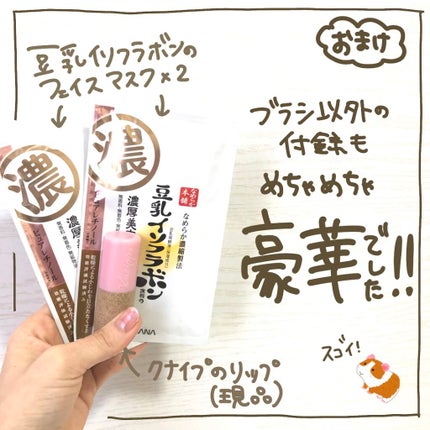 おまけ
豆乳イソフラボンの
フェイスマスク×2
ブラシ以外の
付録も
めちゃめちゃ
豪華でした!!
濃
濃
なめらか本舗
なめらか濃縮製法
豆乳イソフラボン
濃厚美
ピュアレチノール
ANA
クナイプのリップ
(現品)
スゴイ!